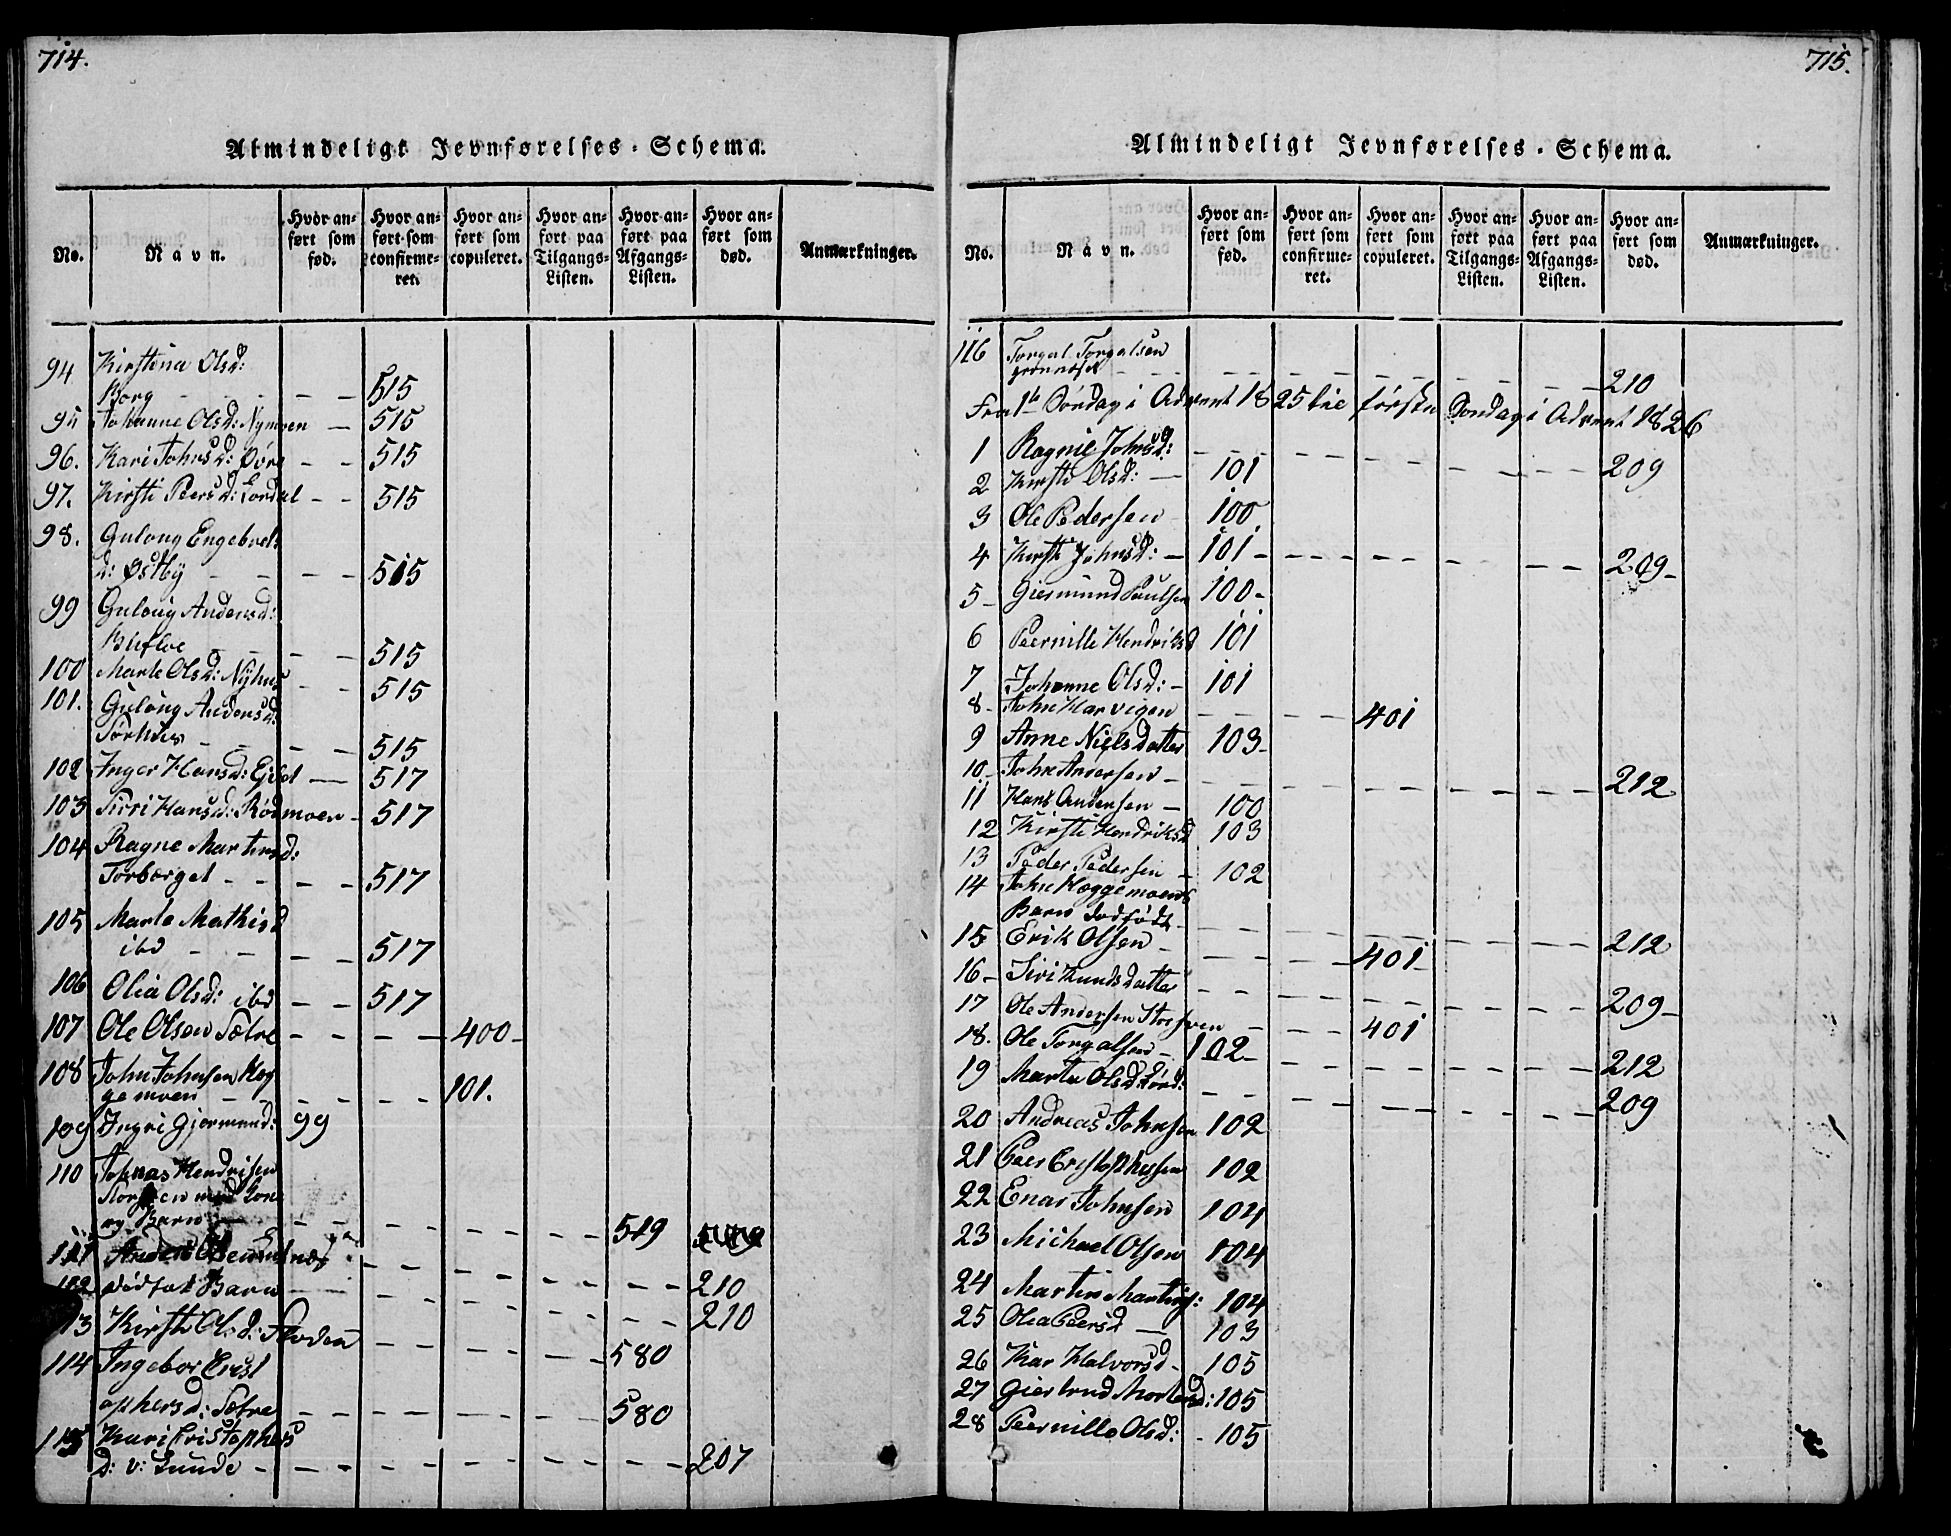 714.
Almindeligt Jevnførelses-Schema.
No. Navn. Hvor anført som fød. Hvor anført som confirmeret. Hvor anført som copuleret. Hvor anført paa Tilgangs-Listen. Hvor anført paa Afgangs-Listen. Hvor anført som død. Anmærkninger.
94 Kirstina Olsd:
Borg - - - 515
95 Johanne Olsd: Nymoen - 515
96. Kari Johnsd: Øvre - - 515
97. Kirsti Peersd: Lordal - - 515
98. Guloug Engebrets
d: Østby - - - - 515
99 Guloug Andersd:
- - - - 515
100 Marte Olsd: Nyhus - - 515
101. Guloug Andersd:
- - - 515
102 Inger Hansd: - 517
103 Sirri Hansd: Rødmoen - 517
104 Ragne Martinsd:
Torborget - - - - 517
105 Marte Mathisd
ibd - - - - 517
106 Olia Olsd: ibd - - 517
107 Ole Olsen Sætre - - - - 400 -
108 John Johnsen Kog
gemoen - - - - - 101.
109 Ingri Gjermund: 99
110 Jonas Hendrisen
med Kone
og Barn - - - - - - - 519
111 Anders - - - - - - - 210
112 Barn - - - - - - - 210
113 Kirsti Olsd: Floden - - - - - 580
114 Ingebor Crist
ophersd: Sætre - - - - - - - 580
115 Kari Cristophers
d: v: Sunde - - - - - - - - - 207
715.
Almindeligt Jevnførelses-Schema.
No. Navn. Hvor anført som fød. Hvor anført som confirmeret. Hvor anført som copuleret. Hvor anført paa Tilgangs-Listen. Hvor anført paa Afgangs-Listen. Hvor anført som død. Anmærkninger.
116 Torgal Torgalsen
- - - - - - - - - 210
Fra 1te Søndag i Advent 1825 til første Søndag i Advent 1826
1 Ragnil Johnsd: - - - - - - - - - 209
2 Kirsti Olsd: - 101
3 Ole Pedersen 100
4 Kirsti Johnsd: - 101 - - - - - - - - 209 -
5 - Giermund Paulsen 100 -
6 Peernille Hendriksd 101
7 Johanne Olsd: - 101
8 - John Harvigen - - - - 401
9 Anne Nielsdatter 103 -
10 - John Andersen - - - - - - - - - 212
11 Hans Andersen - 100
12 Kirsti Hendriksd 103
13 Peder Pedersen - 102
14 John Koggemoens
Barn dødfødt - - - - - - - - - 212
15 Erik Olsen - - - - - 401
16 - Siri Knudsdatter - - - - - - - - 209 -
17 Ole Andersen - - - 401
18. Ole Torgalsen - 102 - - - - - - - - 212
19 Marte Olsd: - - - - - - - - 209
20 Andreas Johnsen 102
21 Peer Cristophersen 102
22 Enar Johnsen 104
23 Michael Olsen 104
24 Martin Martins: 104
25 Olea Peersd - 103
26 Kar Halvorsd - 105
27 Giertrud Mortensd: 105
28 Peernille Olsd: - 105